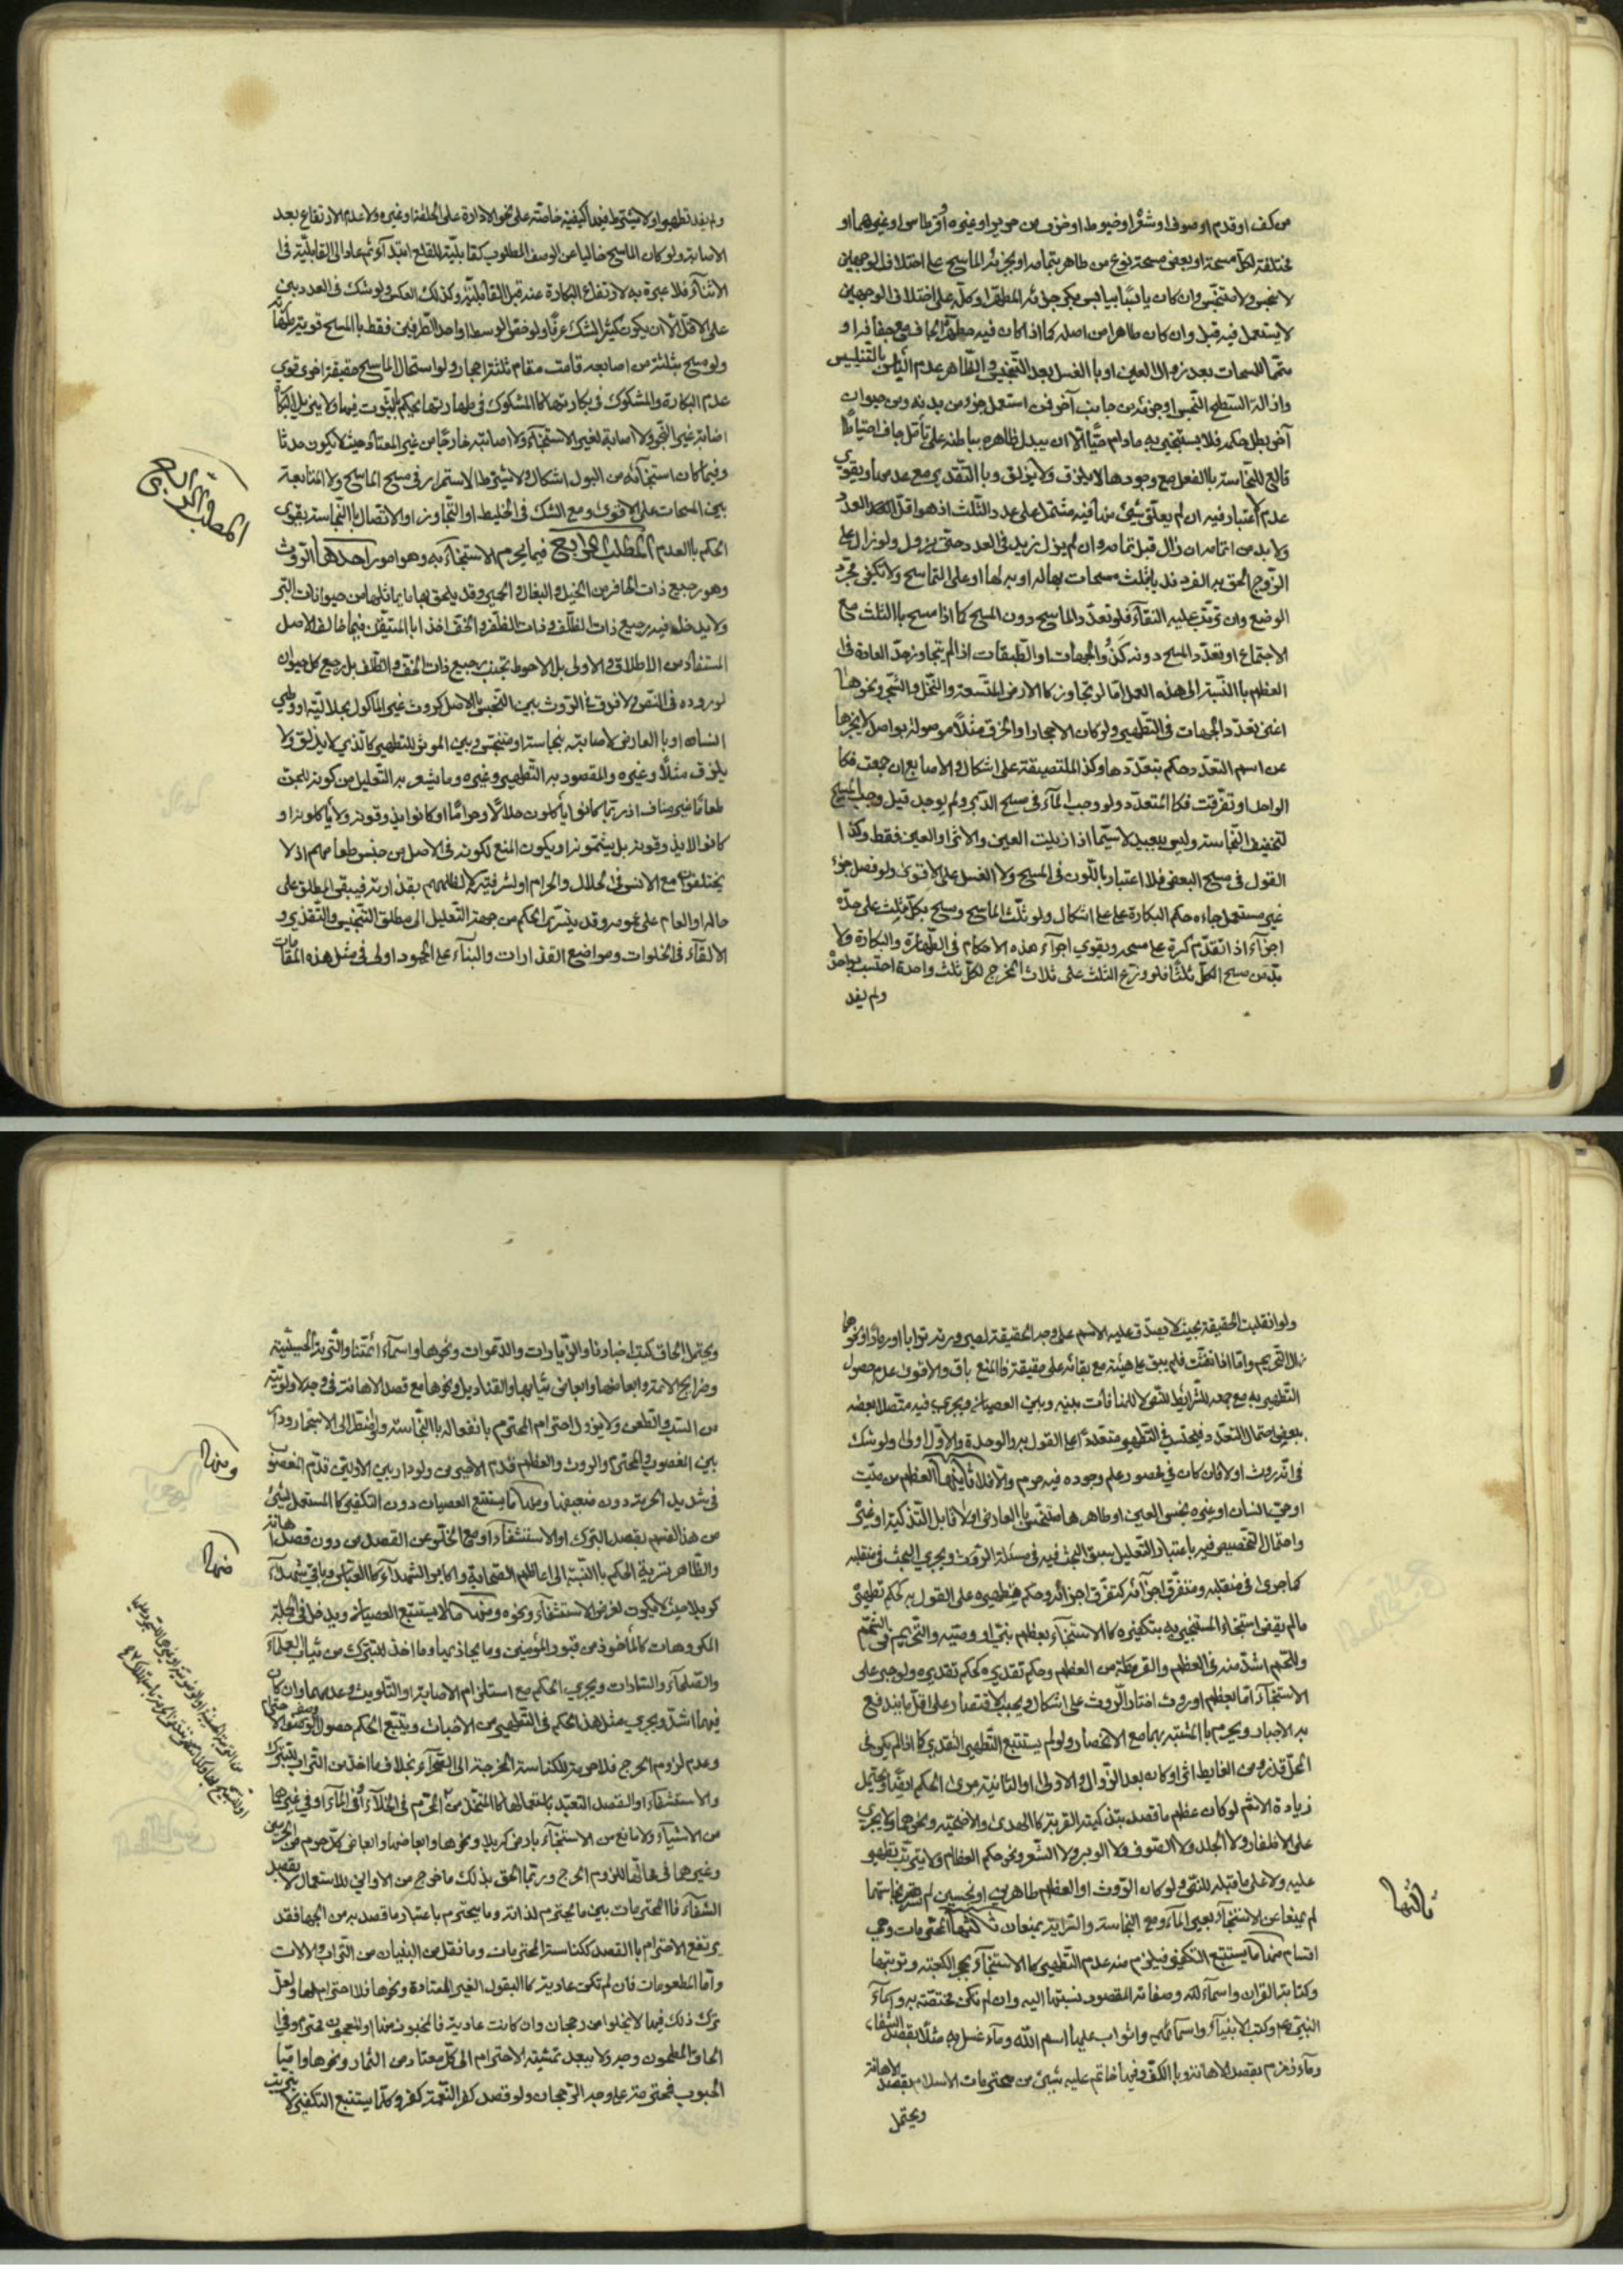 من كف او قدم او صوف او شعر او خيوط او خزف من حرير او غيره او قرطاس او غيرهما او
مختلفة لكل مسحة او بعض مسحة نوع من طاهر بتمامه او بجزئه الماسح على اختلاف الوجهين
لا نجس ولا متنجس وان كان يابسا بيابس بكر جزئه المطهر او كله على اختلاف الوجهين
لا يستعمل فيه قبل وان كان طاهرا من اصله كما اذا كان فيه مطهرا لجاف مع جفافه او
متمما للمسحات بعد زوال العين او بالغسل بعد التنجيس والظاهر عدم الباس بالتنليس
وازالة السطح النجس او جزئه من جانب آخر فمن استعمل جزء من بدنه ومن حيوان
آخر بطل حكمه فلا يستنجى به مادام حيا الا ان يبدل ظاهره بباطنه على تأمل جاف احتياطا
قالع للنجاسة بالفعل مع وجودها لا يلزق ولا يزلق وبالتقدير مع عدمها ويقوى
عدم اعتباره فيه ان لم يعلق شيء منها فيه مشتمل على عدد الثلث اذ هو اقل العدد
ولا بد من اتمامه ان زال قبل تمامه وان لم يزل زيد في العدد حتى يزول ولو زال على
الزوج الحق به الفرد ندبا بثلث مسحات بها له او به لها او على التماسح ولا تكفي مجرد
الوضع وان ترتب عليه النقاء فلو تعدد الماسح دون المسح كما اذا مسح بالثلث مع
الاجتماع او تعدد المسح دونه كذي الجهات او الطبقات اذا لم يتجاوز حد العادة في
العظم بالنسبة الى هذه العمل اما لو تجاوز كالارض المتسعة والنخل والشجر ونحوها
اغنى تعدد الجهات في التطهير ولو كان الاحجار او الخرق مثلا موصولة بواصل لا يخرجها
عن اسم التعدد حكم بتعددها وكذا الملتصقة على اشكال والاصابع ان جمعت فكا
الواحد او تفرقت فكالمتعدد ولو وجب الماء في مسح الدبر ولم يوجد قيل وجب المسح
لتخفيف النجاسة وليس ببعيد لا سيما اذا ازيلت العين والاثر او العين فقط وكذا
القول في مسح البعض فلا اعتبار باللون في المسح ولا الغسل على الاقوى ولو فصل جزء
غير مستعمل جاءه حكم البكارة على اشكال ولو ثلث الماسح ومسح بكل مثلث على حدة
اجزأه اذا تقدم كره على مسحه ويقوي اجراء هذه الاحكام في الطهارة والبكارة ولا
بد من مسح الكل ثلثا فلو وزع الثلث على ثلاث المخرج لكل ثلث واحدة احتسب بواحدة
ولم يفد
ولم يفد تطهيرا ولا يشترط فيها كيفية خاصة على نحو الادارة على الحلقة او غيره ولا عدم الارتفاع بعد
الاصابة ولو كان الماسح خاليا عن الوصف المطلوب كقابلية القلع ابتداء ثم عاد الى القابلية في
الاثناء فلا عبرة به لارتفاع البكارة عنه قبل القابلية وكذلك العكس ولو شك في العدد بنى
على الاقل الا ان يكون كثير الشك عرفا ولو خص الوسط او احد الطرفين فقط بالمسح قوي تطهيرها
ولو مسح بثلثة من اصابعه قامت مقام ثلثة احجار ولو استحال الماسح حقيقة اخرى قوى
عدم البكارة والمشكوك في بكارتها كالمشكوك في طهارتها يحكم بالثبوت فيها ولا يزيل البكارة
اصابة غير النجو ولا اصابة لغير الاستنجاء ولا اصابته خارجا من غير المعتاد حيث لا يكون حدثا
وفيما كان استنجائه من البول اشكال ولا يشترط الاستمرار في مسح الماسح ولا المتابعة
بين المسحات على الاقوى ومع الشك في الخليط او التجاوز او الاتصال بالنجاسة يقوى
الحكم بالعدم المطلب الرابع فيما يحرم الاستنجاء به وهو امور احدها الروث
وهو رجيع ذات الحافر من الخيل والبغال والحمير وقد يلحق بها ما يماثلها من حيوانات البر
ولا يدخل فيه رجيع ذات الظلف وذات الظلف والخف اخذا بالمتيقن فيما خالف الاصل
المستفاد من الاطلاق والاولى بل الاحوط تجنب رجيع ذات الخف والظلف بل رجيع كل حيوان
لوروده في النص ولا فرق في الروث بين النجس بالاصل كروث غير المأكول بجلالية او وطي
انسان او بالعارض لاصابته بنجاسة او متنجس وبين الموثر للتطهير كالذي لا يزلق ولا
يلزق مثلا وغيره والمقصود به التطهير وغيره وما يشعر به التعليل من كونه للجن
طعاما غير مناف اذ ربما كانوا يأكلون حلالا وحراما او كانوا يذوقونه ولا يأكلونه او
كانوا لا يذوقونه بل يشتمونه او يكون المنع لكونه في الاصل من جنس طعامهم اذ لا
يختلفون مع الانس في الحلال والحرام او لشرفيته لا لطلبهم بقذارته فيبقى المطلق على
حاله والعام على عمومه وقد يتسرى الحكم من جهة التعليل الى مطلق التنجيس والتقذير و
الالقاء في الخلوات ومواضيع القذارات والبناء على الجمود اولى في مثل هذه المقامات
المطلب الرابع
ولو انقلبت الحقيقة بحيث لا يصدق عليه الاسم على وجه الحقيقة لصيرورته ترابا او رمادا او نحوهما
زال التحريم واما اذا تفتت فلم يبق على هيئته مع بقائه على حقيقته فالمنع باق والاقوى عدم حصول
التطهير به مع جمعه للشرايط للنهي لا للمنافات بينه وبين العصيان ويجري فيه متصلا بعضه
ببعض احتمال التعدد فيحتسب في التطهير متعددا على القول به والوحدة والاول اولى ولو شك
في انه روث او لا فان كان في محصور علم وجوده فيه حرم والا فلا ثانيها العظم من ميت
او حي انسان او غيره نجس العين او طاهرها متنجس بالعارض او لا قابل التذكية او غيره
واحتمال التخصيص فيه باعتبار التعليل يسبق البحث فيه في مسئلة الروث ويجري البحث في منقلبه
كما جرى في منقلبه ومتفرق اجزائه كمتفرق اجزائه وحكم تطهيره على القول به كحكم تطهيره
ما لم يقض استنجاء المستنجي به بتكفيره كالاستنجاء بعظم نبي او وصيه والتحريم في الفحم
واللحم اشد منه في العظم والقرطمة من العظم وحكم تقديره كحكم تقديره ولو جبر على
الاستنجاء اما بعظم او روث اختار الروث على اشكال ويجب الاقتصار على اقل ما يندفع
به الاجبار ويحرم بالمشتبه بهما مع الانحصار ولو لم يستتبع التطهير التقذير كما اذا لم يكن في
المحل قذر ومن الغايط اثر او كان بعد الزوال والاولى او الثانية جرى الحكم ايضا ويحتمل
زيادة الاثم لو كان عظم ما قصد بتذكيته القربة كالهدى والاضحية ونحوهما ولا يجري
على الاظفار ولا الجلد ولا الصوف ولا الوبر ولا الشعر ونحو حكم العظام ولا يترتب تطهير
عليه ولا على ما قبله للنهي ولو كان الروث او العظم طاهرين او نجسين لم تستقر نجاستهما
لم يمنعا عن الاستنجاء بغير الماء ومع النجاسة والسراية يمنعان ثالثها المحترمات وهي
اقسام منها ما يستتبع التكفير فيلزم منه عدم التطهير كالاستنجاء بحجر الكعبة وتربتها
وكتابة القران واسماء الله وصفاته المقصود نسبتها اليه وان لم تكن مختصة به واسماء
النبي ص وكتب الانبياء واسمائهم واثواب عليها اسم الله وماء غسل به مثلا بقصد الشفاء
وماء زمزم بقصد الاهانة وبالكف وفيها خاتم عليه شيء من محترمات الاسلام بقصد الاهانة
ويحتمل
ثالثها
ويحتمل الحاق كتب اخبارنا والزيارات والدعوات ونحوها واسماء ائمتنا والتربة الحسينية
وضرايح الائمة وابعاضها وابعاض ثيابها والقناديل ونحوها مع قصد الاهانة في وجه لاولويته
من السب والطعن ولا يزول احترام المحترم بانفعاله بالنجاسة ولو اضطر الى الاستجمار ودار
بين المغصوب والمحترم والروث والعظم قدم الاخيرين ولو دار بين الاولين قدم المغصوب
في شديد الحرمة دون ضعيفها ومنها ما يستتبع العصيان دون التكفير كالمستعمل لشيء
من هذا القسم بقصد التبرك او الاستشفاء او مع الخلو عن القصد من دون قصد اهانة
والظاهر تسرية الحكم بالنسبة الى اعاظم الصحابة واكابر الشهداء كالعباس وباقي شهداء
كربلا حيث لا يكون لغرض الاستشفاء ونحوه ومنها ما لا يستتبع العصيان ويدخل في الجملة
المكروهات كالمأخوذ من قبور المؤمنين وما يحاذيها وما اخذ للتبرك من ثياب العلماء
والصلحاء والسادات ويجري الحكم مع استلزام الاصابة او التلويث وعدمهما وان كان
فيهما اشد ويجري مثل هذا الحكم في التطهير من الاخباث ويتبع الحكم حصول الوصف
وعدم لزوم الحرج فلا حرمة للكناسة المخرجة الى الصحراء بخلاف ما اخذ من التراب للتبرك
والاستشفاء او لقصد التعبد باستعمالها كالمتخذ من المحترم في الخلاء او في الماء او في غيرها
من الاشياء ولا مانع من الاستنجاء بارض كربلا ونحوها وابعاضها وابعاض كل حرم من الحرمين
وغيرهما في محالها للزوم الحرج وربما الحق بذلك ما خرج من الاواني للاستعمال لا بقصد
الشفاء فالمحترمات بين ما يحترم لذاته وما يحترم باعتبار ما قصد به من الجهة فقد
يرتفع الاحترام بالقصد ككناسة المحترمات وما نقل من البنيان من التراب والالات
واما المطعومات فان لم تكن عادية كالبقول الغير المعتادة ونحوها فلا احترام لها ولعل
ترك ذلك فيها لا يخلو من رجحان وان كانت عادية فالمخبوز منها او المعجون محترم وفي
الحاق المطحون وجه ولا يبعد تمشية الاحترام الى كل معتاد من الثمار ونحوها واما
الحبوب فمحترمة على وجه الرجحان ولو قصد كفر النعمة كفر وكلما يستتبع التكفير لا يترتب
ومنها
منها